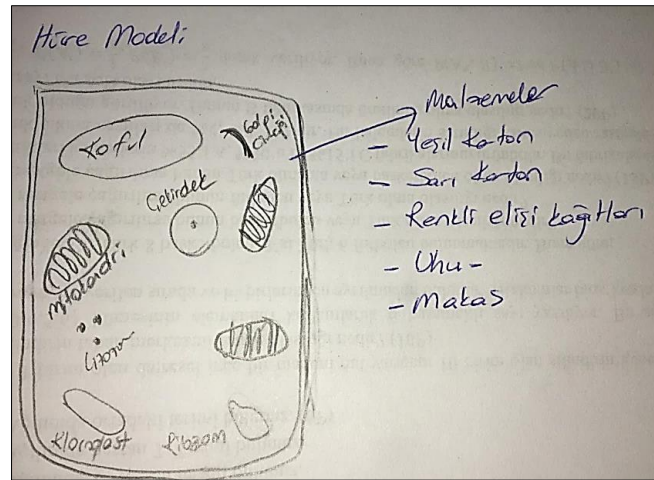 Hücre Modeli
Koful
Golgi
Cisimciği
Çekirdek
Mitokondri
Lizozom
Kloroplast
Ribozom
Malzemeler
- Yeşil Karton
- Sarı Karton
- Renkli elişi kağıtları
- Uhu -
- Makas